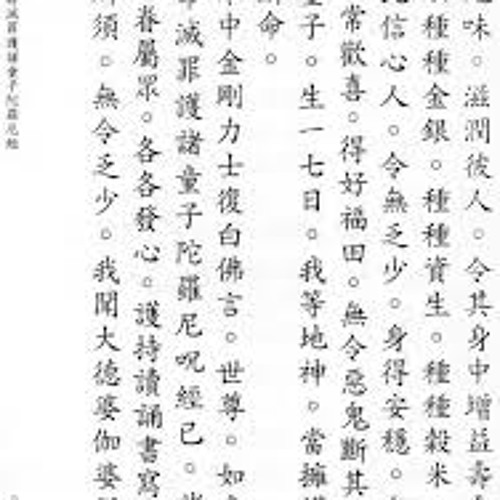 味。滋潤彼人。令其身中增益壽
種種金銀。種種資生。種種穀米
信心人。令無乏少。身得安穩。
常歡喜。得好福田。無令惡鬼斷其
童子。生一七日。我等地神。當擁
命。
中金剛力士復白佛言。世尊。如
滅罪護諸童子陀羅尼呪經已。
眷屬眾。各各發心。護持讀誦書寫
須。無令乏少。我聞大德婆伽婆
滅罪護諸童子陀羅尼經